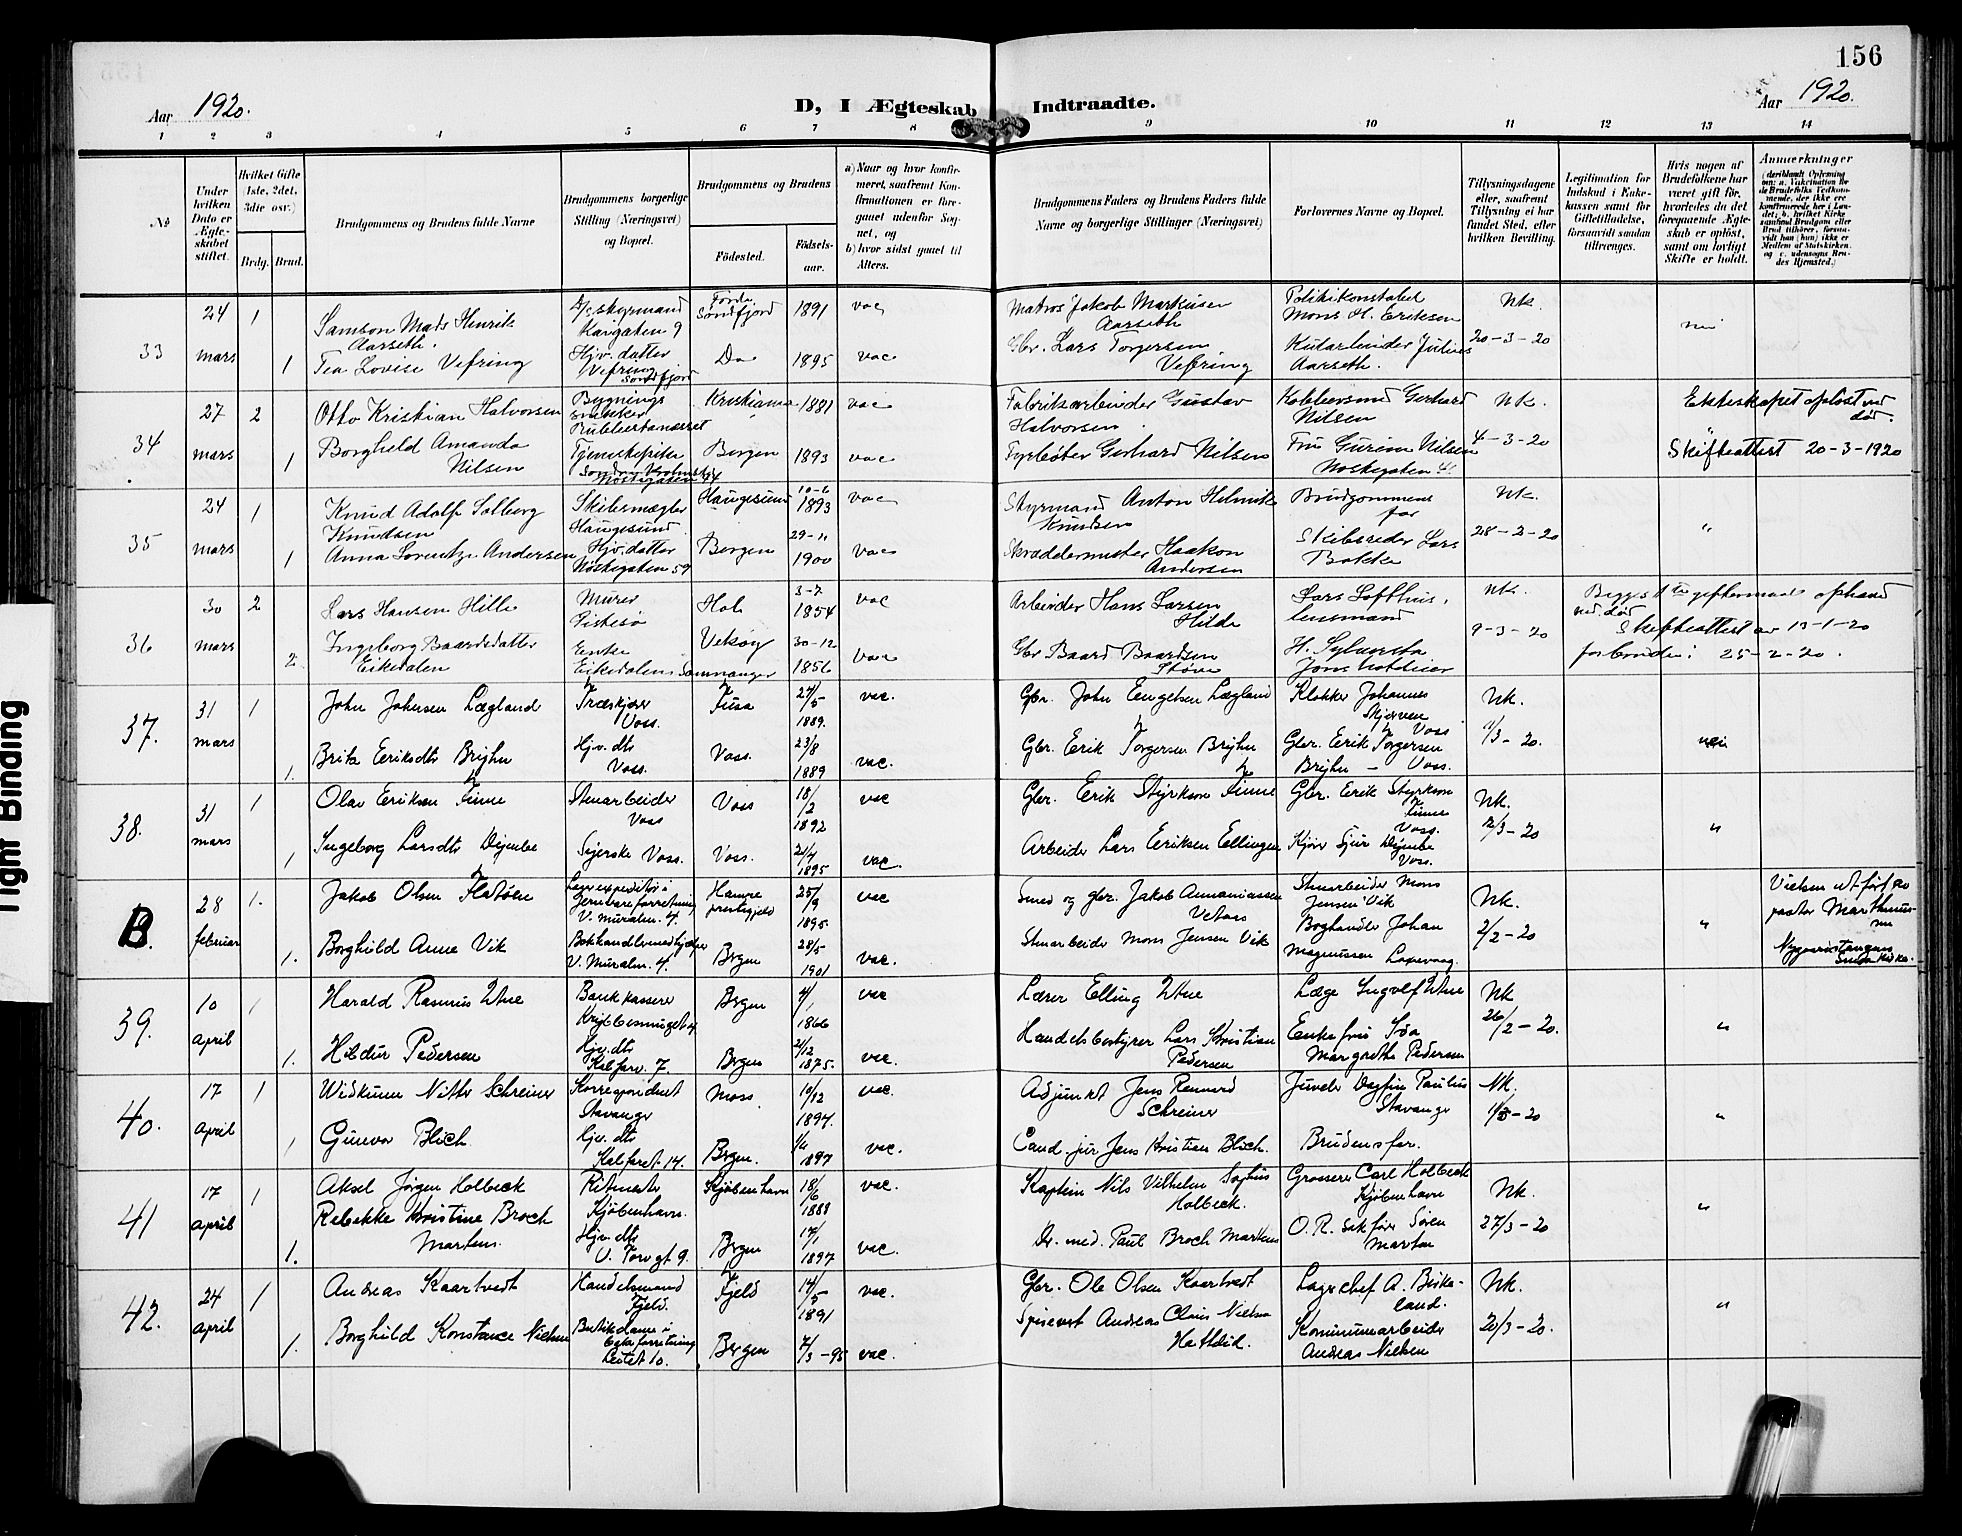 156
Aar 1920.
D, I Ægteskab Indtraadte.
Aar 1920.
1 2 3 4 5 6 7 8 9 10 11 12 13 14
No
Under hvilken Dato er Ægteskabet stiftet.
Hvilket Gifte (1ste, 2det, 3die osv.)
Brdg. Brud.
Brudgommens og Brudens fulde Navne
Brudgommens borgerlige Stilling (Næringsvei) og Bopæl.
Brudgommens og Brudens
Födested.
Födselsaar.
a) Naar og hvor konfirmeret, saafremt Konfirmationen er foregaaet udenfor Sognet, og
b) hvor sidst gaaet til Alters.
Brudgommens Faders og Brudens Faders fulde Navne og borgerlige Stillinger (Næringsvei)
Forlovernes Navne og Bopæl.
Tillysningsdagene eller, saafremt Tillysning ei har fundet Sted, efter hvilken Bevilling.
Legitimation for Indskud i Enkekassen samt for Giftetilladelse, forsaavidt saadan tiltrænges.
Hvis nogen af Brudefolkene har været gift för, hvorledes da det foregaaende Ægteskab er oplöst, samt om lovligt Skifte er holdt.
Anmærkninger
(deriblandt Oplysning om: a. Vakcination for de Brudefolks Vedkommende, der ikke ere konfirmerede her i Landet; b. hvilket Kirkesamfund Brudgom eller Brud tilhörer, forsaavidt han (hun) ikke er Medlem af Statskirken, og c. udensogns Brudes Hjemsted.)
33
24 mars 1
Samson Mads Henrik Aarseth.
D/s styrmand Kaigaten 9
Førde Søndfjord 1891 vac
Matros Jakob Markusen Aarseth
Politikonstabel Mons H. Eriksen
NK. nei
1 Tea Lovise Vefring
Hjv. datter Vefring Søndfjord
Do 1895 vac
Gbr. Lars Torgersen Vefring
Julius Aarseth.
20-3-20
34
27 mars 2
Otto Kristian Halvorsen
Bygnings snekker
Kristiania 1881 vac
Fabrikarbeider Gustav Halvorsen
Gerhard Nilsen
NK.
Ekteskapet opløst ved død.
1 Borghild Amanda Nilsen
Bergen 1893 vac
Fyrbøter Gerhard Nilsen
Fru Gurine Nilsen Nøstegaten 41
4-3-20
Skifteattest 20-3-1920
35
24 mars 1
Knud Adolf Solberg Knudsen
Skibsmægler Haugesund
Haugesund 10-6 1893 vac
Styrmand Anton Helmik Knudsen
Brudgommens far
NK.
1 Anna Lorentze Andersen
Hjv. datter Nøstegaten 59
Bergen 29-11 1900 vac
Skræddermester Haakon Andersen
Skibsreder Lars Bakke
28-2-20 "
36
30 mars 2
Lars Hansen Hille
Murer
3-7 1854 vac
Arbeider Hans Larsen Hilde
Lars Lofthus, lensmand
NK.
Begges 1ste giftermaal ophævd ved død
2 Ingeborg Baardsdatter Eikedalen
Enke Eikedalen i Samnanger
Vikøy 30-12 1856 vac
Gbr Baard Baardsen
9-3-20
Skifteattest av 13-1-20
for bruden: 25-2-20.
37.
31 mars 1
John Johnsen Lægland
Træskjærer Voss.
Fusa 27/5 1889. vac.
Gbr. John Engelsen Lægland
Klokker Johannes Skjerven Voss
NK.
1. Brita Eriksdtr Brijhn
Hjv. dtr Voss.
Voss. 23/8 1889 vac.
Gbr. Erik Torgersen Brijhn
Gbr. Erik Torgersen Brijhn – Voss.
1/3-20. nei
38.
31 mars 1
Olav Eriksen Finne
Stenarbeider Voss
Voss 18/2 1892 vac
Gbr. Erik Styrkson Finne
Gbr. Erik Styrkson Finne Voss.
NK.
1 Ingeborg Larsdtr Dejmbe
Syerske Voss.
Voss. 21/4 1895 vac.
Arbeider Lars Eriksen Ellingen
Kjører Sjur Dejmbe Voss.
12/3-20 "
B.
28 februar 1.
Jakob Olsen Flatøen
Lagerexpeditør i Jernvareforretning V. Muralm. 4.
Hamre prestegjeld 25/9 1895 vac
Smed og gbr. Jakob Annaniassen
Stenarbeider Mons Jensen Vik
NK.
Vielsen utført pr pastor Marthinussen
1. Borghild Anne Vik
Bokhandlermedhjælper V. Muralm. 4.
Bergen 28/5 1901 vac.
Stenarbeider Mons Jensen Vik
Boghandler Johan Magnussen Laxevaag.
2/2-20 "
39.
10 april 1
Harald Rasmus Utne
Bankkasserer
Bergen 4/1 1866 vac
Lærer Elling Utne
Læge Ingolf Utne
NK
1. Hildur Pedersen
Hjv. dtr Kalfarv. 7.
Bergen 2/12 1875. vac.
Handelsbestyrer Lars Kristian Pedersen
Enkefru Margrethe Pedersen
26/2-20. "
40.
17 april 1
Widkunn Nitter Schreiner
Korrespondent Stavanger
Moss 10/12 1894. vac.
Adjunkt Jens Rennord Schreiner
Juveler Dagfin Paulus Stavanger
NK.
1 Gunvor Blich
Hjv. dtr Kalfaret 14.
Bergen. 1897 vac.
Cand. jur Jens Kristian Blich.
Brudens far.
1/3-20 "
41
17 april 1
Aksel Jørgen Holbeck
Ritmester Kjøbenhavn.
Kjøbenhavn 18/6 1889 vac.
Kaptein Nils Vilhelm Sophus Holbeck.
Grosserer Carl Holbeck Kjøbenhavn
NK.
1. Rebekke Kristine Broch Martens.
Hjv. dtr V. Torvgt 9.
Bergen 17/1 1897 vac.
Dr. med. Paul Broch Martens
O.R. sakfører Søren Martens
27/3-20 "
42.
24 april 1
Andreas Kaartvedt
Handelsmand Fjeld.
Fjeld 14/5 1891 vac.
Gbr. Ole Olsen Kaartvedt
Lagerchef A. Birkeland.
NK.
1. Borghild Konstance Nielsen
Butikdame i Lektet 10.
Bergen 7/3-95 vac.
Andreas Claus Nielsen
Kommunearbeider Andreas Nielsen
20/3-20. "
Tight Binding